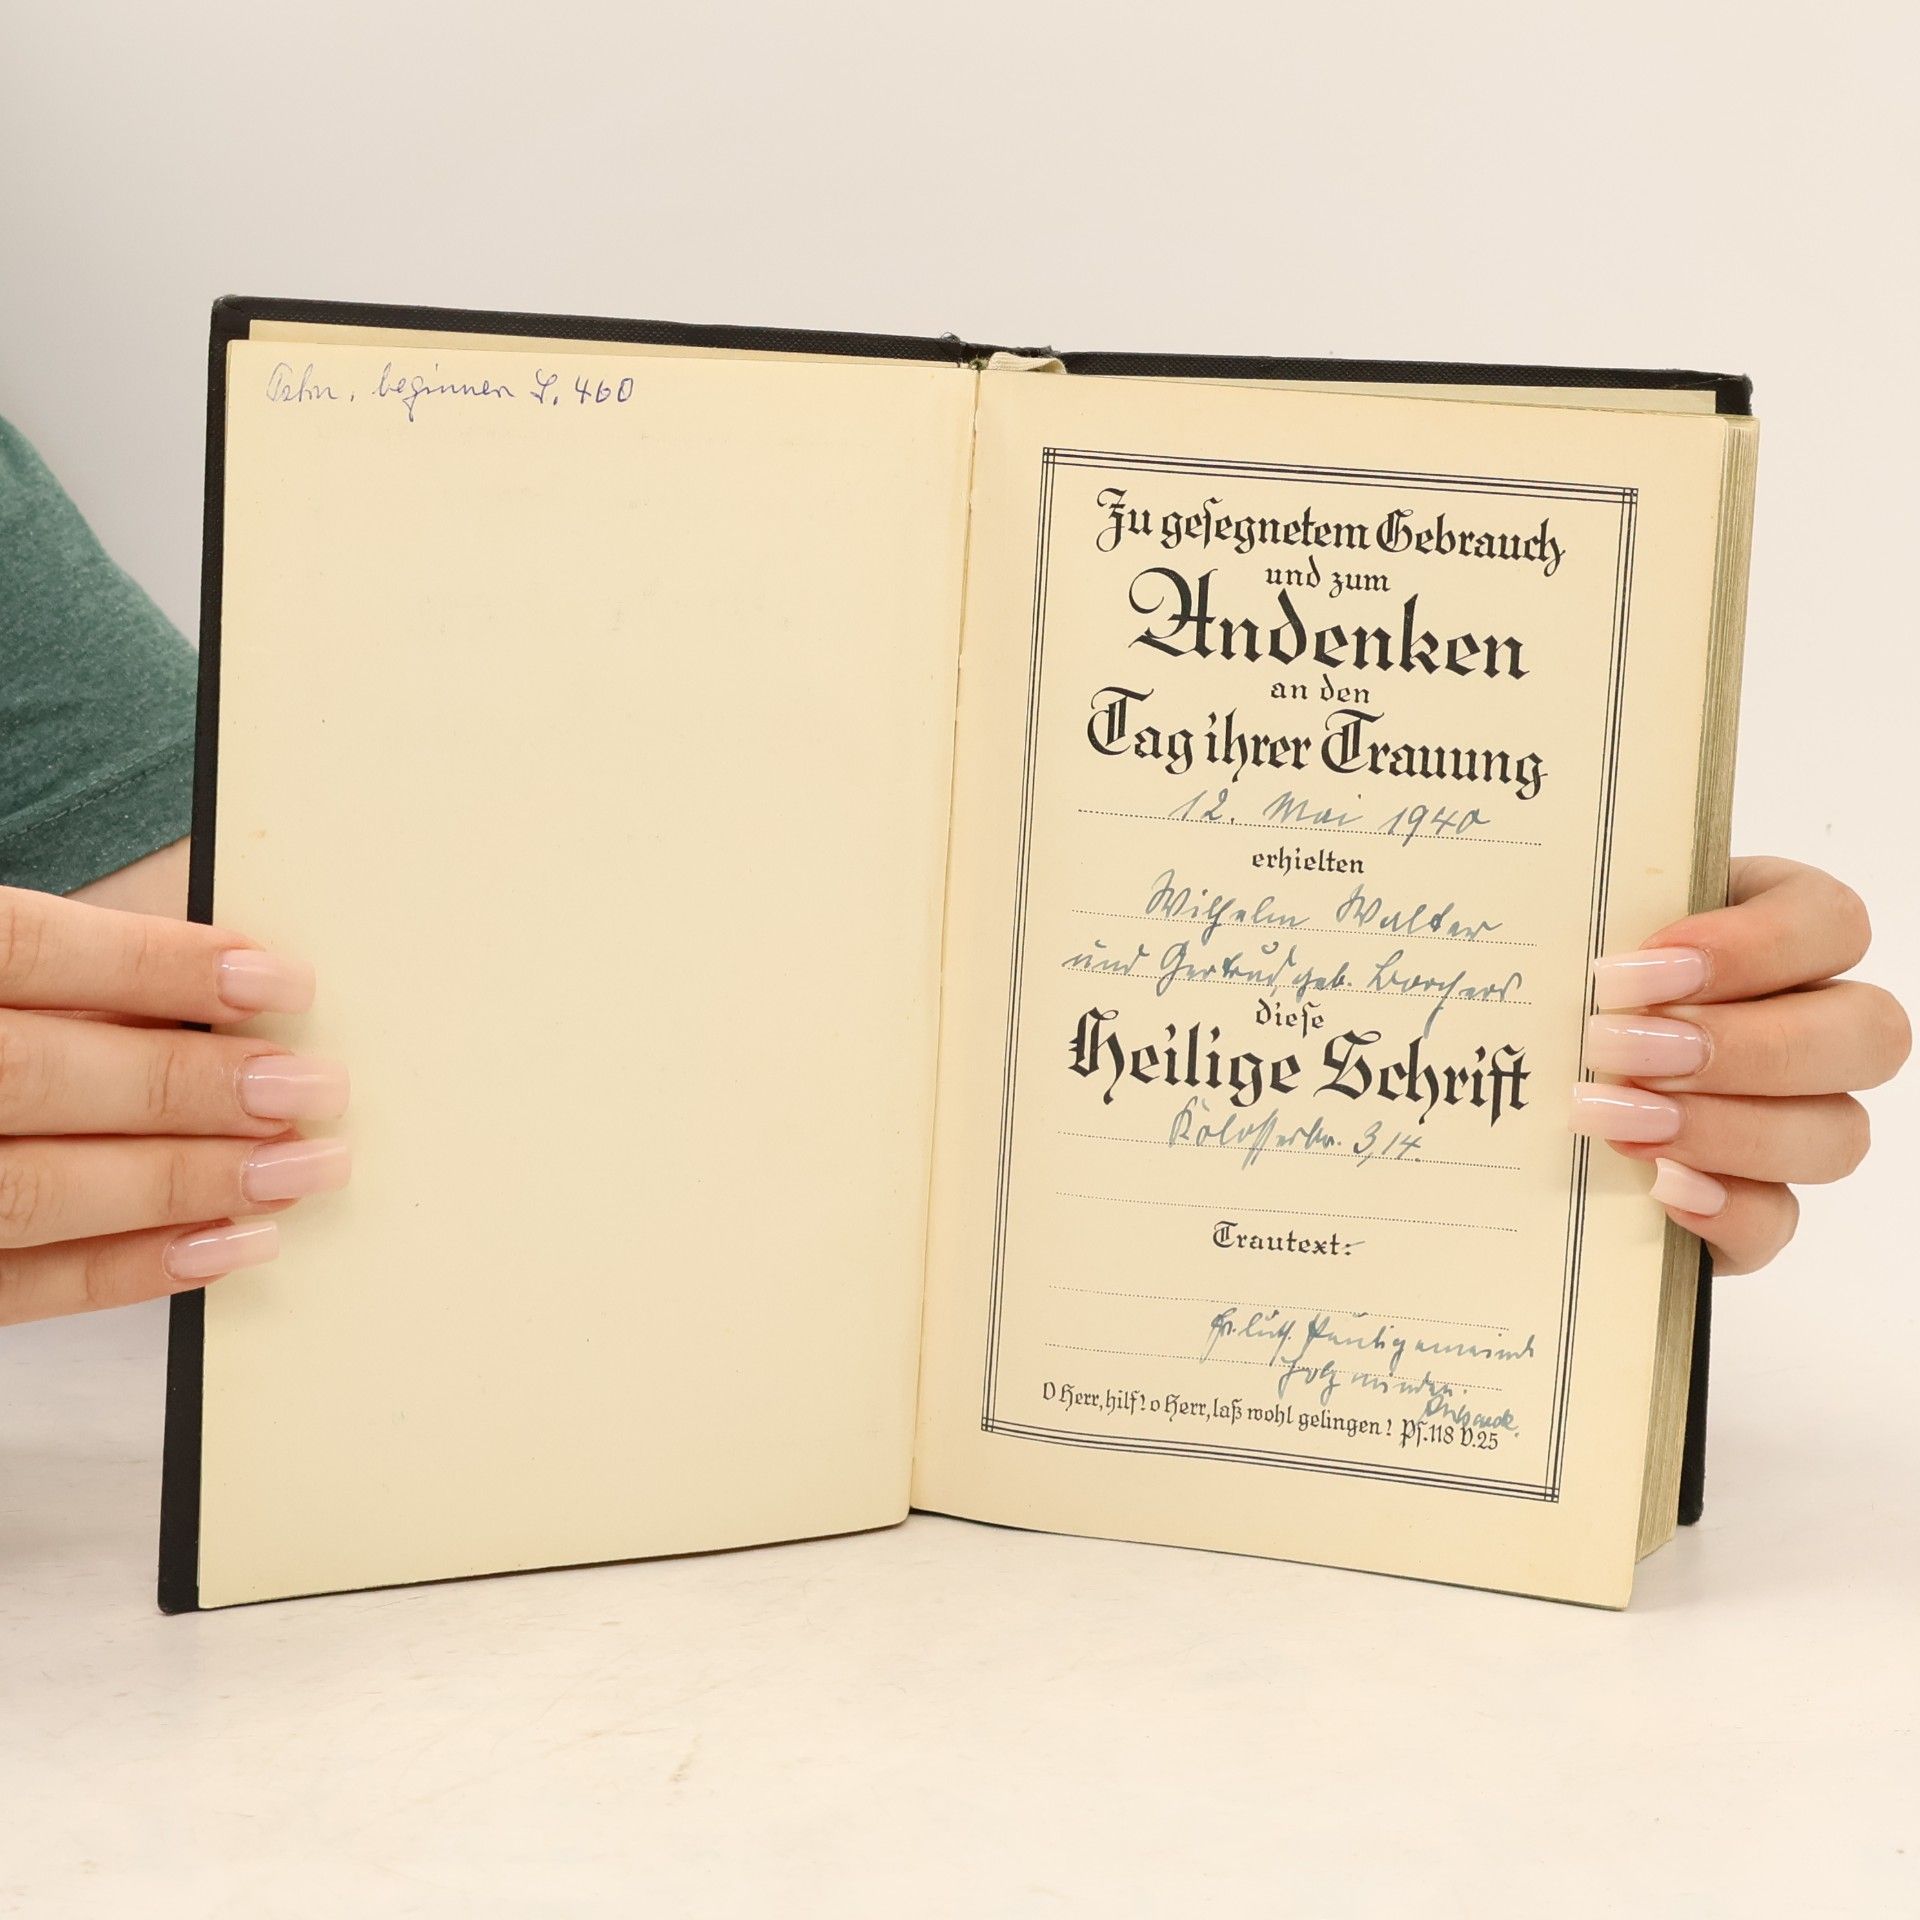 beginnen S. 460
Zu gesegnetem Gebrauch
und zum
Andenken
an den
Tag ihrer Trauung
12. Mai 1940
erhielten
Wilhelm Walter
und Gertrud, geb. Borchers
diese
Heilige Schrift
Kolosserbr. 3,14.
Trautext:
Ev. luth. Pauligemeinde
Holzminden.
O Herr, hilf! o Herr, laß wohl gelingen! Ps. 118 V. 25